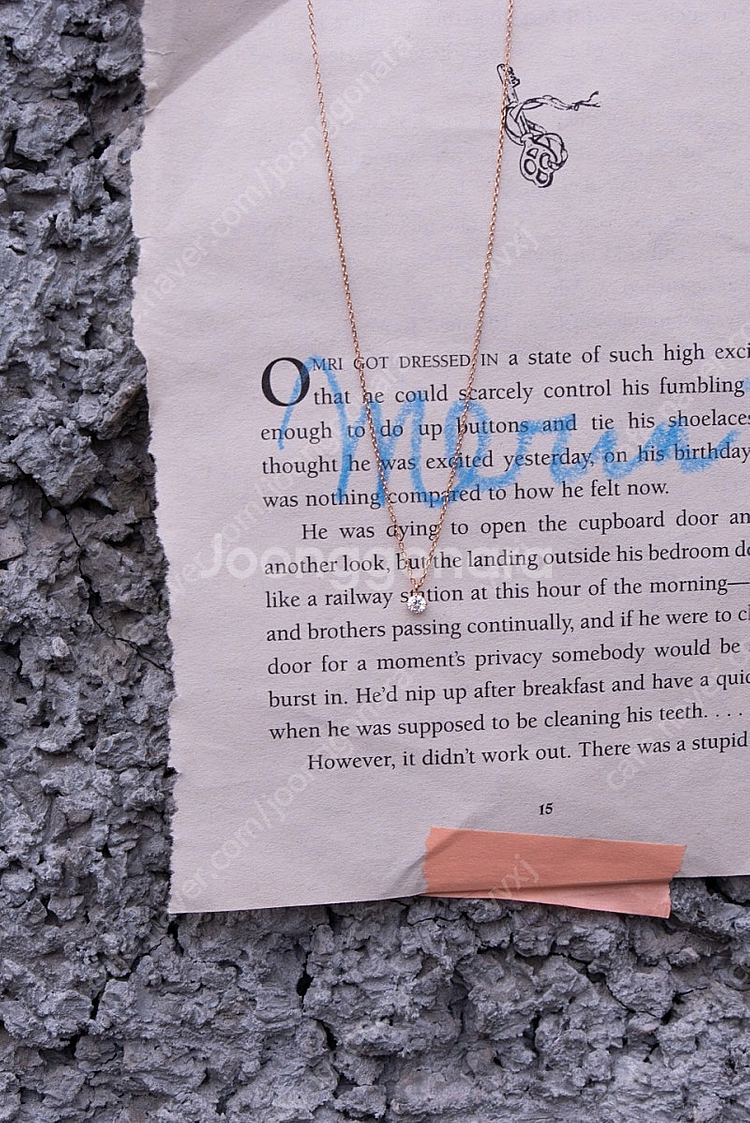 OMRI GOT DRESSED IN a state of such high exci
that he could scarcely control his fumbling
enough to do up buttons and tie his shoelaces
thought he was excited yesterday, on his birthday
was nothing compared to how he felt now.
He was dying to open the cupboard door an
another look, but the landing outside his bedroom do
like a railway station at this hour of the morning—
and brothers passing continually, and if he were to cl
door for a moment's privacy somebody would be
burst in. He'd nip up after breakfast and have a quic
when he was supposed to be cleaning his teeth. . . .
However, it didn't work out. There was a stupid
15
Joonggonara